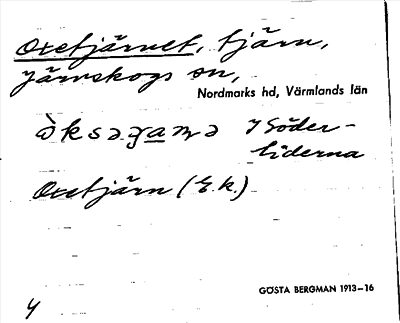 Oxetjärnet, tjärn,
Järnskogs sn,
Nordmarks hd, Värmlands län
I Söder-
liderna
Oxetjärn (E.k.)
GÖSTA BERGMAN 1913–16
4